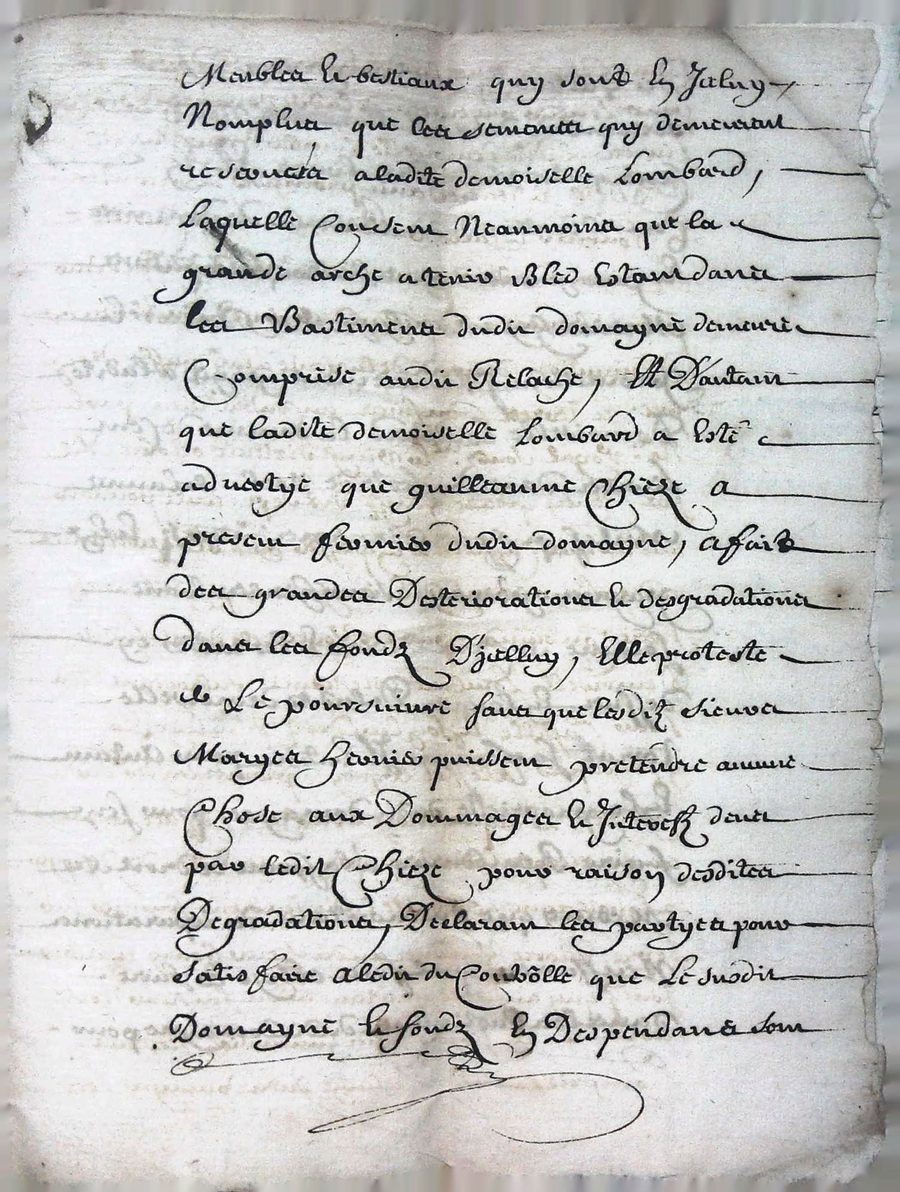 Meubles et bestiaux quy sont en Jceluy
Nomplus que les semences quy demeurent
reservées a ladite demoiselle Lombard,
Laquelle Consent Neanmoins que la
grande arche a tenir Bled Estant dans
les Bastimens dudit domayne demeure
Comprise audit Relache, Et D'autant
que ladite demoiselle Lombard a Esté
advertye que guilleaume Chieze a
present fermier dudit domayne, a fait
des grandes Desteriorations et desgradations
dans les fondz D'jcelluy, Elle proteste
de Le poursuivre sans que lesditz sieurs
Maryes hernier puissent pretendre aucune
Chose aux Dommages et Jnterestz deus
par ledit Chieze pour raison desdites
Degradations, Declarant les partyes pour
satisfaire a ledit du Controlle que Le susdit
Domayne et fondz en Despendans sont